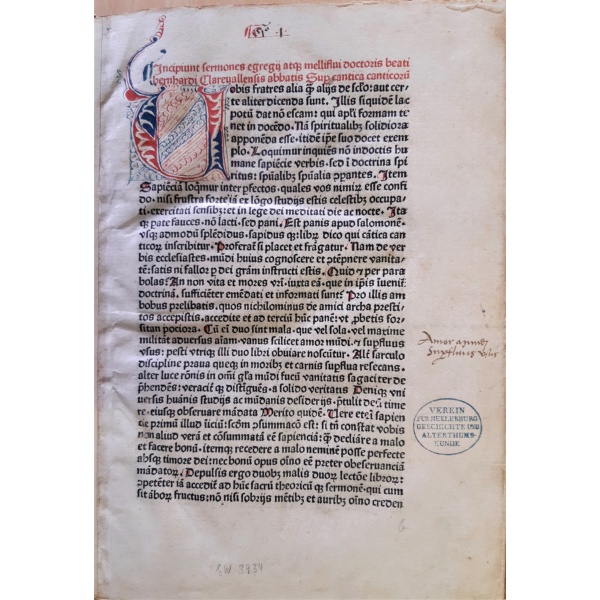 ·I·
Incipiunt sermones egregij atqȝ melliflui doctoris beati
bernhardi Clareuallensis abbatis Sup cantica canticorū
Uobis fratres alia q̄ alijs de sclo: aut cer
te aliter dicenda sunt. Illis siquidē lac
potū dat nō escam: qui apli formam te
net in docēdo. Nā spiritualibȝ solidiora
apponēda esse. itidē ipse suo docet exem
plo. Loquimur inquiēs nō in doctis hu
mane sapiēcie verbis. sed i doctrina spi
ritus: spūalibȝ spūalia pparantes. Item
Sapiēciā loqmur inter pfectos. quales vos nimirȝ esse confi
do. nisi frustra forte iā ex lōgo studijs estis celestibȝ occupa
ti. exercitati sensibȝ: et in lege dei meditati die ac nocte. Ita
qȝ pate fauces. nō lacti. sed pani. Est panis apud salomonē.
vsqȝ admodū splēdidus. sapidus qȝ: librȝ dico qui cātica can
ticoꝝ inscribitur. Proferat̄ si placet et frāgatur. Nam de ver
bis ecclesiastes. mūdi huius cognoscere et ɔtēpnere vanita
tē: satis ni fallor p dei grām instructi estis. Quid et per para
bolas: An non vita et mores vri. iuxta eā. que in ipis iueniī
doctrinā. sufficiēter emēdati et informati sunt: Pro illis am
bobus prelibatis. quos nichilominus de amici archa presti/
tos accepistis. accedite et ad terciū hūc panē: vt pbetis for-
sitan pociora. Cū ei duo sint mala. que vel sola. vel maxime
militāt aduersus aiam. vanus scilicet amor mūdi. et supfluus
vsus: pesti vtriqȝ illi duo libri obuiare noscūtur. Alt̄ sarculo
discipline praua queqȝ in moribȝ et carnis supflua resecans.
alter luce rōnis in omi glā mūdi fucū vanitatis sagaciter de
phēdens: veraciter qȝ distīguēs. a solido veritatis Deniqȝ vni
uersis huānis studijs ac mūdanis desiderijs. ptulit deū time
re. eiusqȝ obseruare mādata Merito quidē. Uere etei sapien
cie primū illud iiciū: scōm ɔsummacō est: si tn constat vobis
non aliud verā et cōsummatā eē sapienciā: q̄ declīare a malo
et facere bonū. itemqȝ recedere a malo neminē posse perfecte
absqȝ timore dei: nec bonū opus oīno eē preter obseruanciā
mādatoꝝ. Depulsis ergo duobȝ malis duoꝝ lectōne libroꝝ:
ɔpetēter iā accedit̄ ad hūc sacrū theoricū qȝ sermonē. qui cum
sit āboꝝ fructus: nō nisi sobrijs mētibȝ et auribȝ oīno creden
Amor mundi
Supfluus vsus
VEREIN
FÜR MEKLENBURG.
GESCHICHTE UND
ALTERTHUMS-
KUNDE
GW 3934